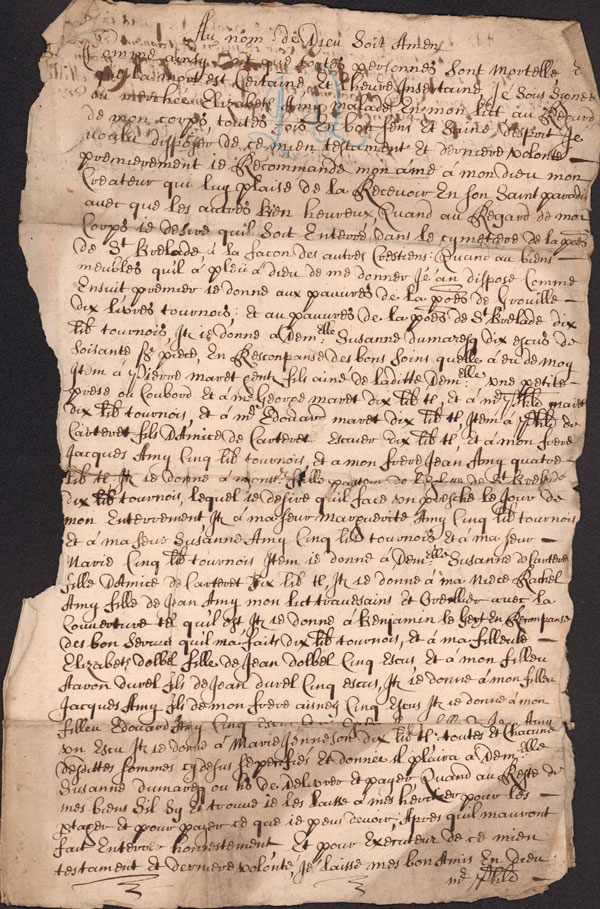 Au nom de Dieu Soit Amen
Comme ainsy Soit que toutes personnes Sont Mortelle
que La mort est Certaine Et l'heure Insertaine Je Sous Signet
Elizabeth Amy malade En mon lict au Regard
de mon Corps toutes fois En bon sens Et Saine Esprit Je
voulu disposer de ce mien testament Et derniere volonte
premierement ie Recommande mon ame à mon dieu mon
Createur qui luy plaise de la Recevoir En son Saint paradis
avec que les autres bien heureux, Quand au Regard de mon
Corps ie desire qu'il Soit Enterre dans le Cymetiere de la poes
de St Brelade à la facon des autres Crestiens: Quand au biens
meubles qu'il à pleu à dieu de me donner Je au dispose Comme
Ensuit premier ie donne aux pauvres de la poes de Grouville
dix livres tournois; et au pauvres de la poes de St Brelade dix
lib tournois, It ie donne a Dem:elle Susanne dumaresq dix escus de
Soisante ss piece, En Resconpanse des bons Soins quelle à eu de moy
Item à Pierre maret gent fils aine de laditte Dem:elle une petite
et à mr George maret dix lib tl, et a mr Phld maret
dix lib tournois, et à mr Edouard maret dix lib tl, Item à Phld de
Carteret fils D'Amice de Carteret Escuier dix lib tl, et a mon frere
Jacques Amy Cinq lib tournois, et a mon frere Jean Amy quatre
lib tl, It ie donne a monsr pasteur de de St Brelade
dix lib tournois, lequel ie desire qu'il face un presche le Jour de
mon Enterrement It à ma seur marguerite Amy Cinq lib tournois
et à ma seur Susanne Amy Cinq lib tournois et à ma Seur
Marie Cinq lib tournois Item ie donne à Dem:elle Susanne de Carteret
fille D'Amice de Carteret dix lib tl, It ie donne à ma Niece Rachel
Amy fille de Jean Amy mon lict travesains et Oreillier avec la
Couverture tel qu'il est, It ie donne a Benjamin le En Reconpanse
des bon Service qu'il ma faits dix lib tournois, et à ma filleule
Elizabeth dolbel fille de Jean dolbel Cinq Escus, et à mon filleu
Aaron durel fils de Jean durel Cinq escus, It ie donne à mon filleu
Jacques Amy fils de mon frere aisney Cinq Escus It ie donne à mon
filleu Edouard Amy Cinq Escus Amy
un Escu It ie donne à Marie dix lib tl: toutes et Chacune
desdittes sommes cy desus Spesifiés et donner il plaira à Dem:elle
Susanne dumaresq ou hs de Delivrer et payer Quand au Reste de
mes biens Sil Sy En trouve ie les laisse à mes heritier pour les
ptager et pour payer ce que ie peus devoir, Apres quil mauront
fait Enterrer honnestement Et pour Executeur de ce mien
testament et derniere volonte, Je laisse mes bon Amis En Dieu
mr Phld